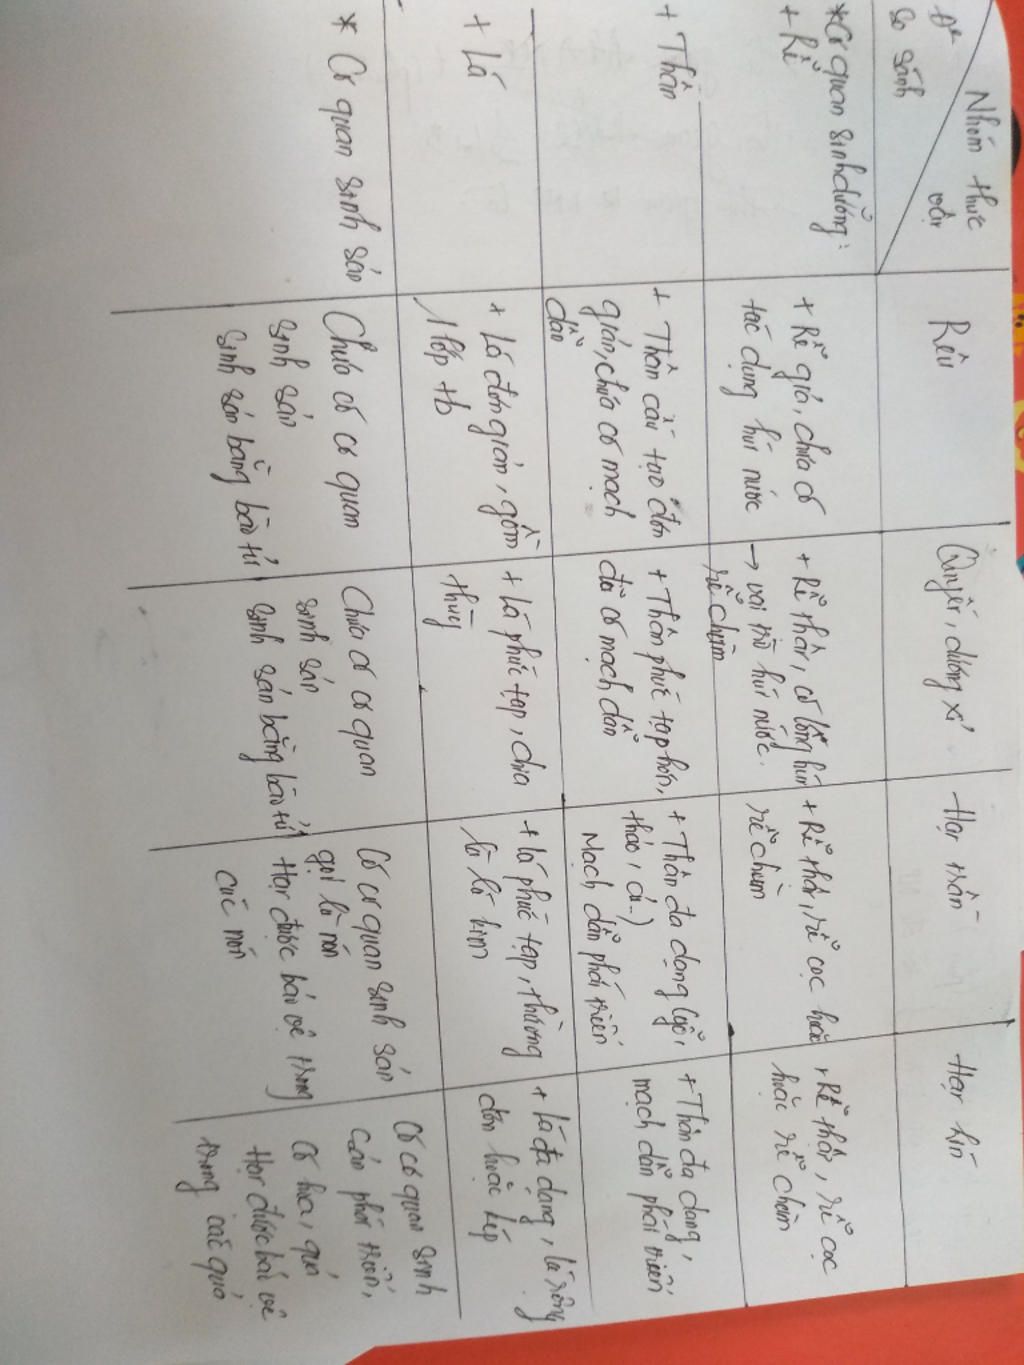 Nhóm thực
vật
Đ²
so sánh
Rêu
Quyết, dương xỉ
Hạt trần
Hạt kín
*Cơ quan sinh dưỡng:
+ Rễ
+ Rễ giả, chưa có
tác dụng hút nước
+ Rễ thật, có lông hút
→ vai trò hút nước.
rễ chùm
+ Rễ thật, rễ cọc hoặc
rễ chùm
+ Rễ thật, rễ cọc
hoặc rễ chùm
+ Thân
+ Thân cấu tạo đơn
giản, chưa có mạch
dẫn
+ Thân phức tạp hơn,
đã có mạch dẫn
+ Thân đa dạng (gỗ,
thảo, củ..)
Mạch dẫn phát triển
+ Thân đa dạng,
mạch dẫn phát triển
+ Lá
+ Lá đơn giản, gồm
1 lớp tb
+ Lá phức tạp, chia
thùy
+ Lá phức tạp, thường
là lá kim
+ Lá đa dạng, lá rộng
đơn hoặc kép
* Cơ quan sinh sản
Chưa có cơ quan
sinh sản
sinh sản bằng bào tử
Chưa có cơ quan
sinh sản
sinh sản bằng bào tử
Có cơ quan sinh sản
gọi là nón
Hạt được bảo vệ trong
các nón
Có cơ quan sinh
sản phát triển,
Có hoa, quả
Hạt được bảo vệ
trong các quả